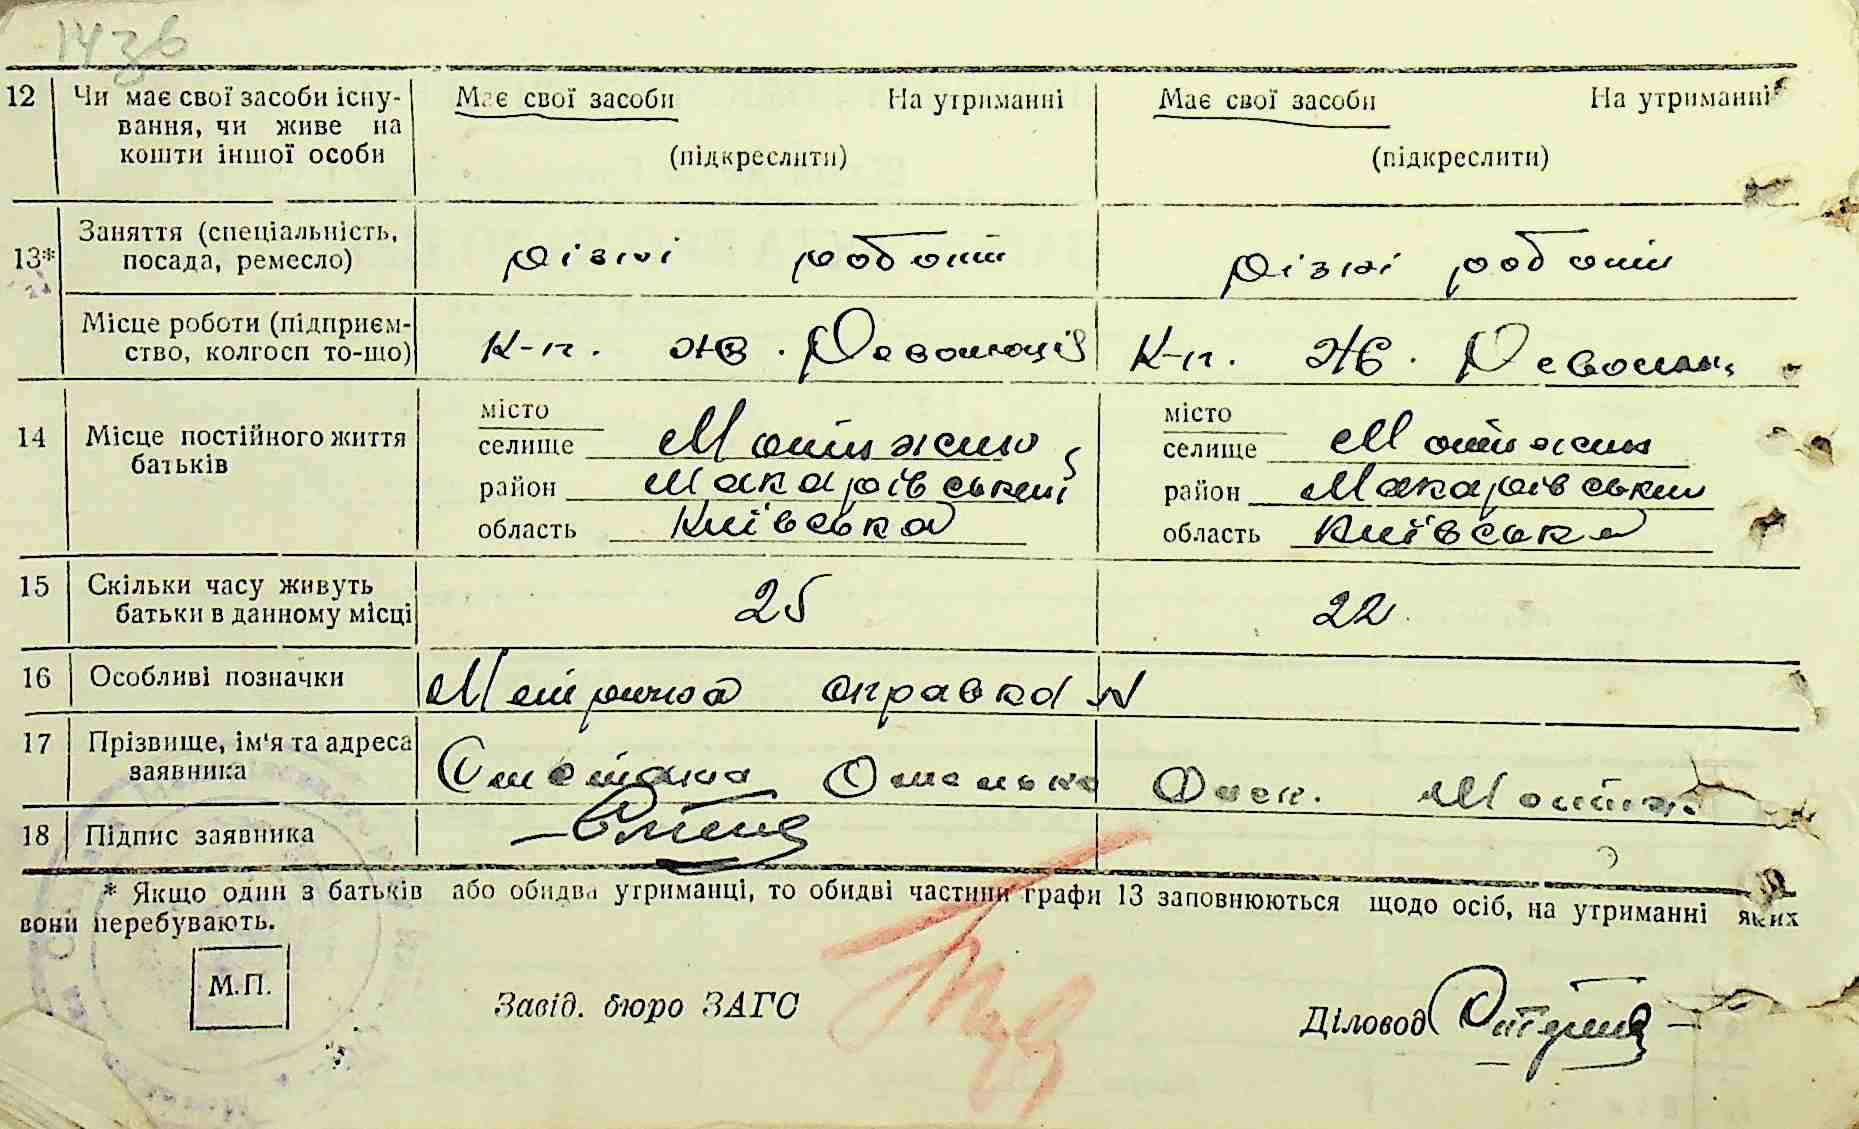 14зв
12 Чи має свої засоби існу- Має свої засоби На утриманні Має свої засоби На утриманні
вання, чи живе на
кошти іншої особи (підкреслити) (підкреслити)
Заняття (спеціальність,
13* посада, ремесло) різні роботи різні роботи
Місце роботи (підприєм-
ство, колгосп то-що) К-п. Жв. Революції К-п. Жв. Революц.
місто місто
14 Місце постійного життя селище Мотижин селище Мотижин
батьків район Макарівський район Макарівський
область Київська область Київська
15 Скільки часу живуть
батьки в данному місці 25 22
16 Особливі позначки Метрична справка N
17 Прізвище, ім'я та адреса
заявника Омелько Мотиж.
18 Підпис заявника
* Якщо один з батьків або обидва утриманці, то обидві частини графи 13 заповнюються щодо осіб, на утриманні яких
вони перебувають.
М.П.
Завід. бюро ЗАГС
Діловод